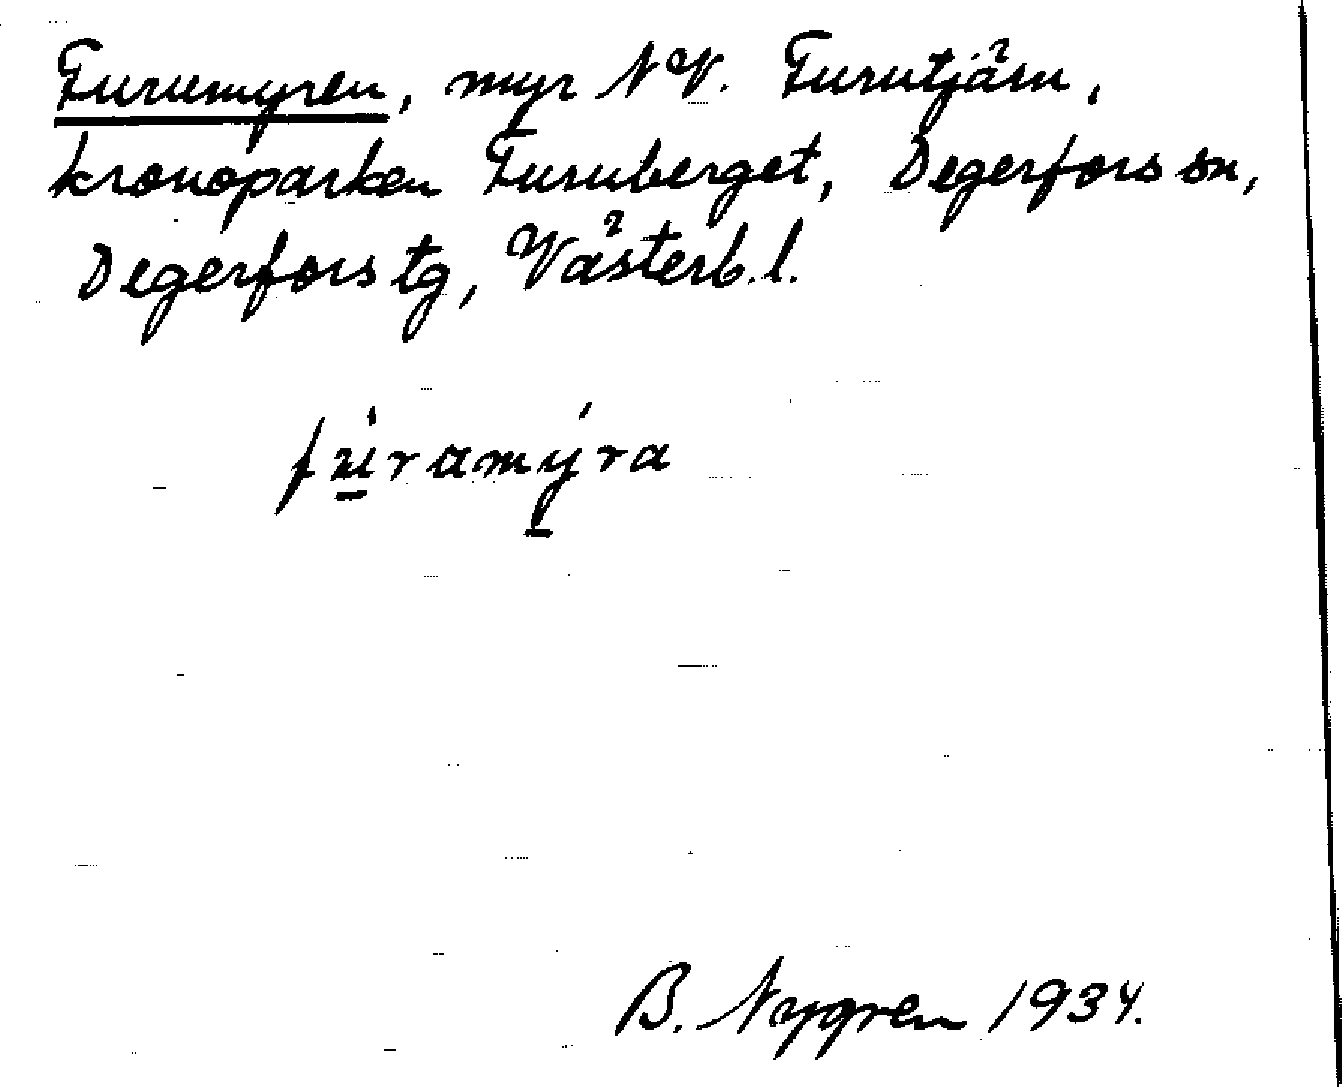 Furumyren, myr NV. Furutjärn,
kronoparken Furuberget, Degerfors sn,
Degerfors tg, Västerb. l.
fúramýra
B. Nygren 1934.